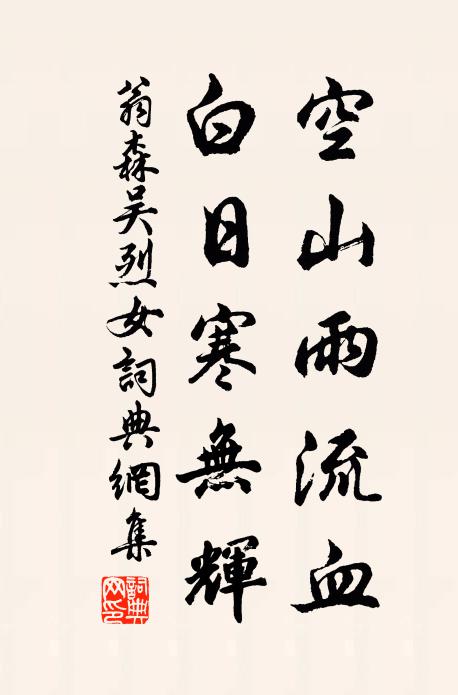 空山雨流血
白日寒無輝
翁森吴烈女詞典網集
詞典網印